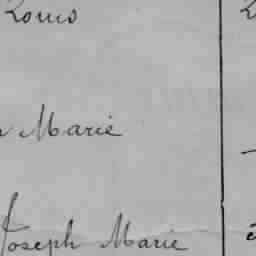 Louis
Marie
Joseph Marie